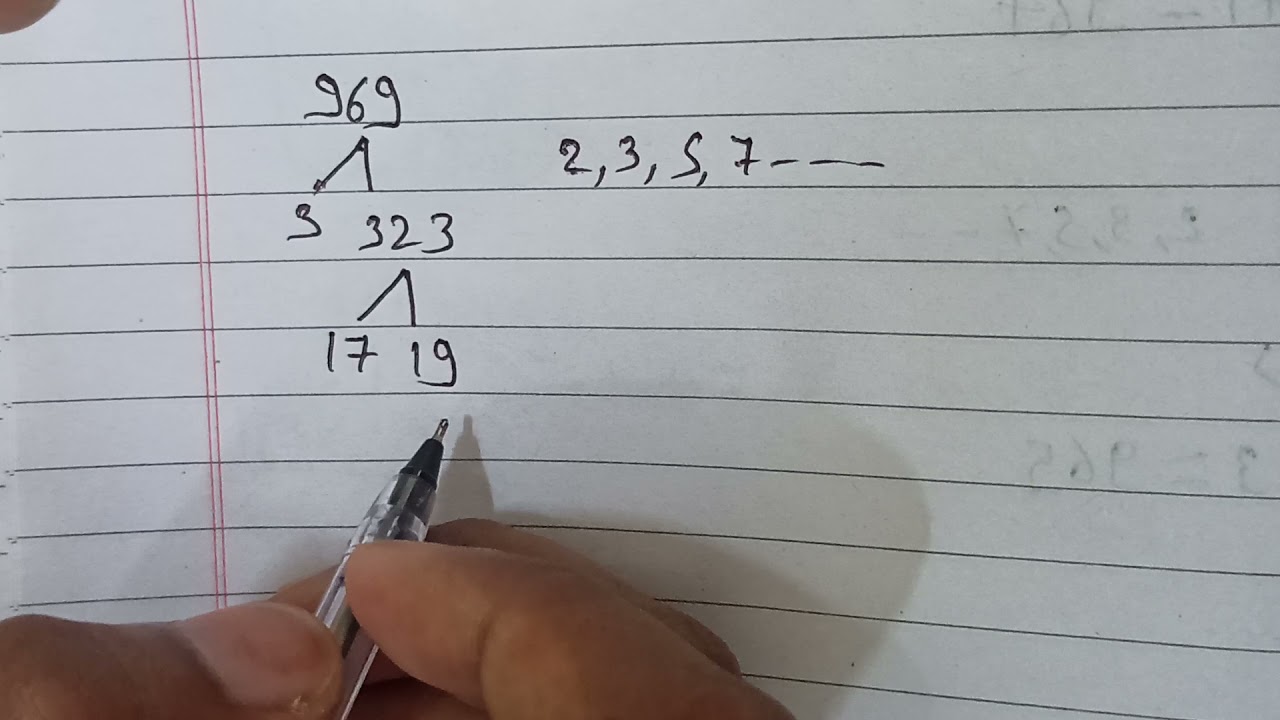 969
2, 3, 5, 7 - —
3 323
17 19